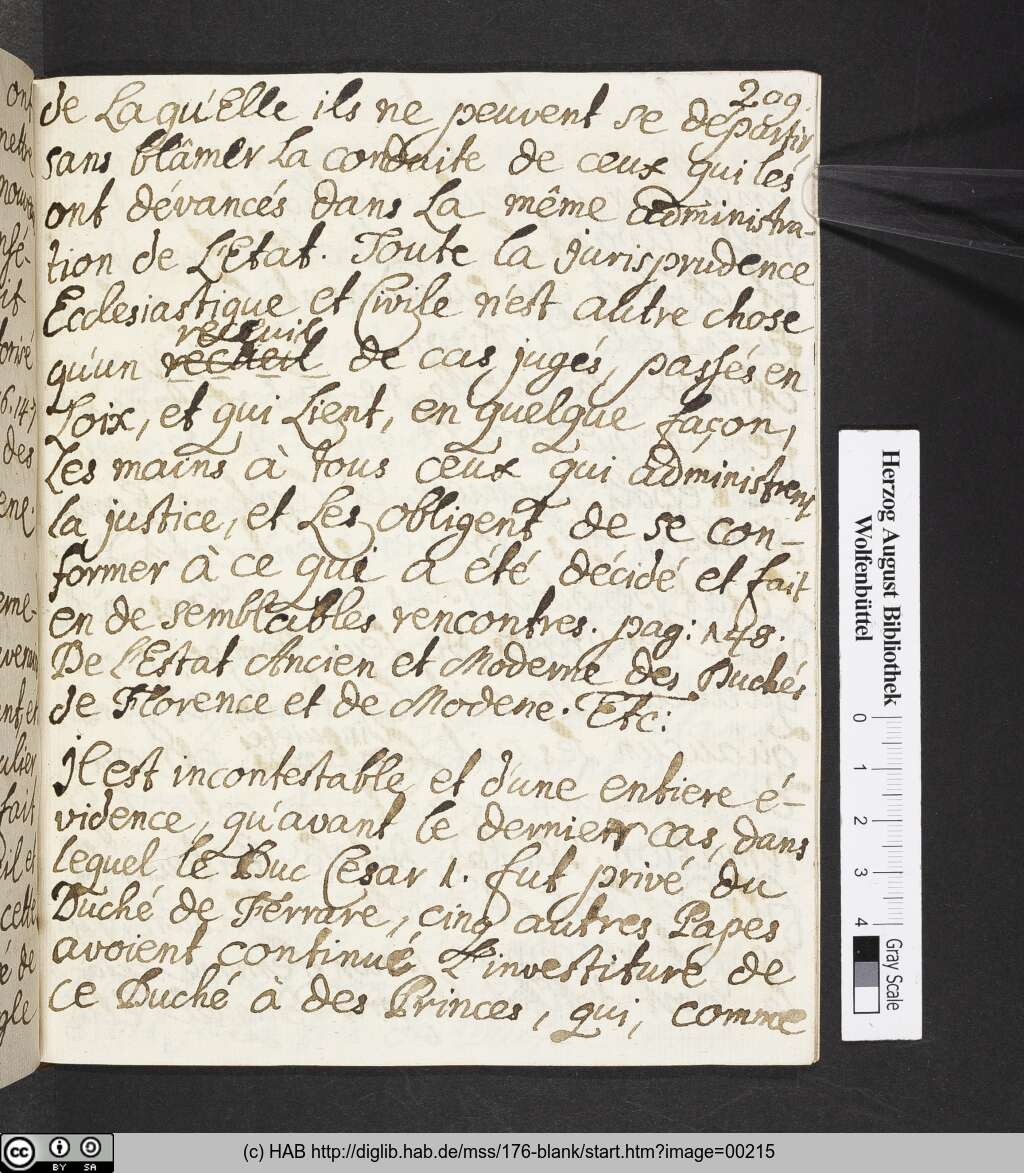 209.
de Laqu'Elle ils ne peuvent se departir
sans blâmer La conduite de ceux qui lés
ont dévancés dans La même administra-
tion de L'Etat. Toute la jurisprudence
Ecclesiastique et Civile n'est autre chose
receuil
qu'un recueil de cas jugés, passés en
Loix, et qui Lient, en quelque façon,
Les mains à tous ceux qui administrent
la justice, et Les obligent de se con-
former à ce qui a été décidé et fait
en de semblables rencontres. pag: 148.
De L'Estat Ancien et Moderne des Duchés
de Florence et de Modene. Etc:
Il est incontestable et d'une entiere é-
vidence, qu'avant le dernier cas, dans
lequel le Duc Cesar 1. fut privé du
Duché de Ferrare, cinq autres Papes
avoient continué L'investiture de
ce Duché à des Princes, qui, comme
Herzog August Bibliothek
Wolfenbüttel
0 1 2 3 4
Gray Scale
cc BY SA
(c) HAB http://diglib.hab.de/mss/176-blank/start.htm?image=00215